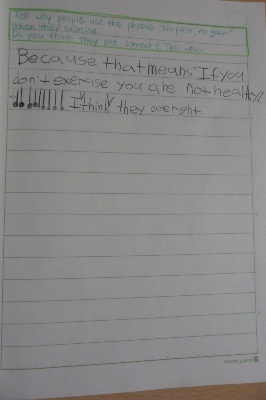 Tell why people use the phrase "No pain, no gain"
When they exercise.
Do you think they are correct? Tell why.
Because that means "If you
don't exercise you are not healthy!!
!!!!!!!!!! I think they are right.